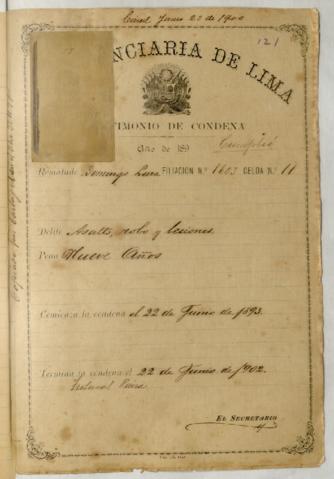 Junio 23 de 1900
121
NCIARIA DE LIMA
TIMONIO DE CONDENA
Año de 189
Cumplió
Rematado Domingo FILIACION N.º 1603 CELDA N.º 11
Delito Asalto, robo y lesiones
Pena Nueve Años
Comienza la condena el 22 de Junio de 1893.
Termina la condena el 22 de Junio de 1902.
Natural
EL SECRETARIO